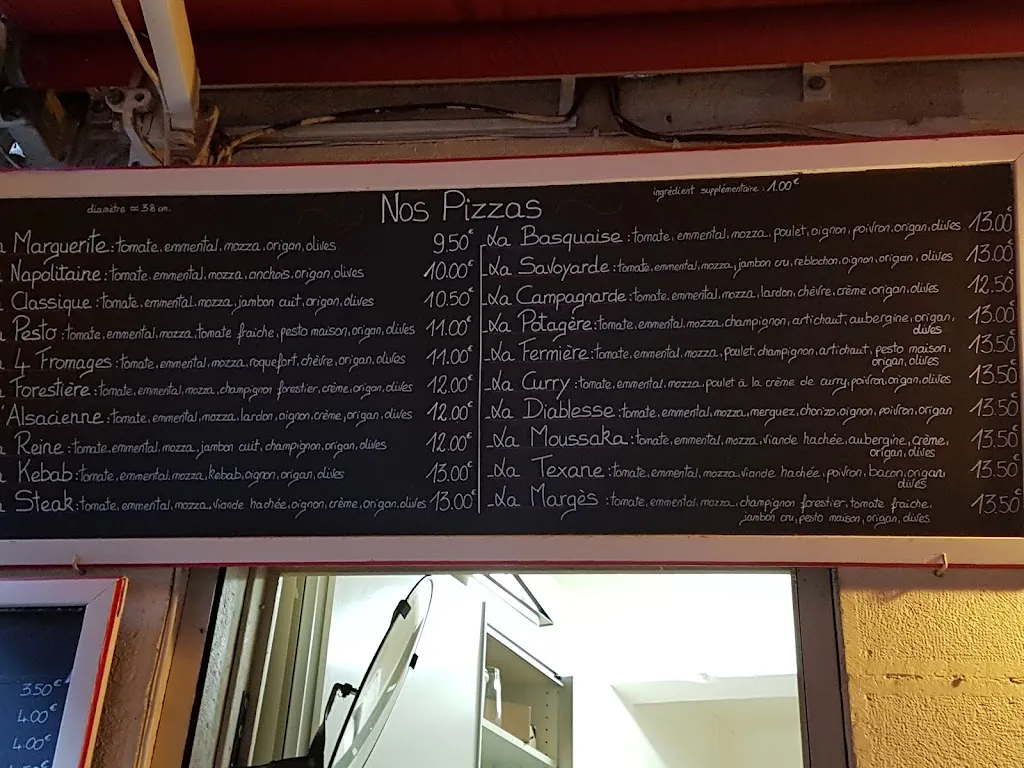 Nos Pizzas
diamètre ≈ 38 cm.
ingrédient supplémentaire : 1.00€
a Marguerite : tomate, emmental, mozza, origan, olives 9.50€
a Napolitaine : tomate, emmental, mozza, anchois, origan, olives 10.00€
a Classique : tomate, emmental, mozza, jambon cuit, origan, olives 10.50€
a Pesto : tomate, emmental, mozza, tomate fraiche, pesto maison, origan, olives 11.00€
a 4 Fromages : tomate, emmental, mozza, roquefort, chèvre, origan, olives 11.00€
a Forestière : tomate, emmental, mozza, champignon forestier, crème, origan, olives 12.00€
'Alsacienne : tomate, emmental, mozza, lardon, oignon, crème, origan, olives 12.00€
a Reine : tomate, emmental, mozza, jambon cuit, champignon, origan, olives 12.00€
a Kebab : tomate, emmental, mozza, kebab, oignon, origan, olives 13.00€
a Steak : tomate, emmental, mozza, viande hachée, oignon, crème, origan, olives 13.00€
La Basquaise : tomate, emmental, mozza, poulet, oignon, poivron, origan, olives 13.00€
La Savoyarde : tomate, emmental, mozza, jambon cru, reblochon, oignon, origan, olives 13.00€
La Campagnarde : tomate, emmental, mozza, lardon, chèvre, crème, origan, olives 12.50€
La Potagère : tomate, emmental, mozza, champignon, artichaut, aubergine, origan, 13.00€
olives
La Fermière : tomate, emmental, mozza, poulet, champignon, artichaut, pesto maison, 13.50€
origan, olives
La Curry : tomate, emmental, mozza, poulet à la crème de curry, poivron, origan, olives 13.50€
La Diablesse : tomate, emmental, mozza, merguez, chorizo, oignon, poivron, origan 13.50€
La Moussaka : tomate, emmental, mozza, viande hachée, aubergine, crème, 13.50€
origan, olives
La Texane : tomate, emmental, mozza, viande hachée, poivron, bacon, origan, 13.50€
olives
La Margès : tomate, emmental, mozza, champignon forestier, tomate fraiche, 13.50€
jambon cru, pesto maison, origan, olives
3.50€
4.00€
4.00€